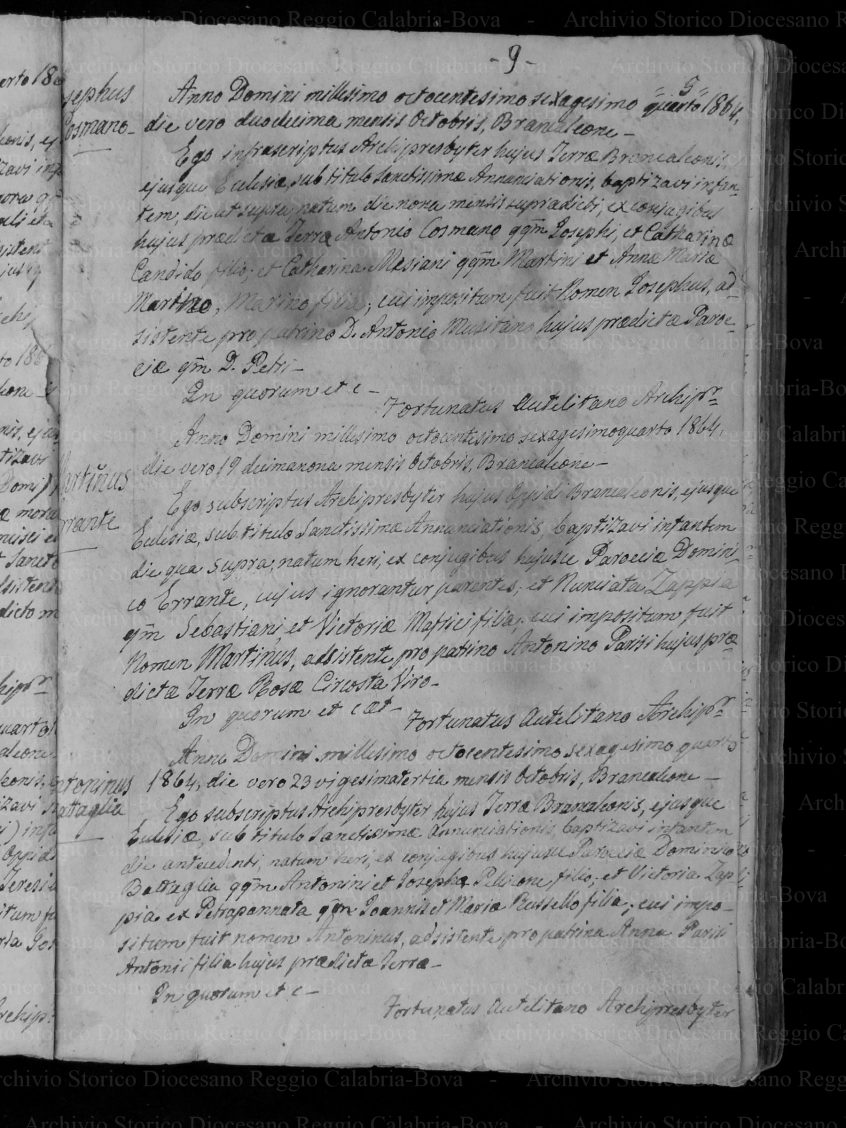 - 9 -
" 5 "
Josephus
Cosmano-
Anno Domini millesimo octocentesimo sexagesimo quarto 1864,
die vero duodecima mensis Octobris, Brancaleone-
Ego infrascriptus Archipresbyter hujus Terræ Brancaleonis,
ejusque Eclesiæ, sub titulo Sanctissimæ Annunciationis, baptizavi infan-
tem, die ut supra, natum die nona mensis supradicti, ex conjugibus
hujus prædictæ Terræ Antonio Cosmano qqm Josephi, et Catharinæ
Candido filio, et Catherina Mesiani qqm Martini et Annæ Mariæ
Marino filia; cui impositum fuit Nomen Josephus, ad-
sistente pro patrino D. Antonio Musitano hujus prædictæ Paroe-
ciæ qm D. Petri-
In quorum et c-
Fortunatus Autelitano Archipr
Martinus
Errante
Anno Domini millesimo octocentesimo sexagesimoquarto 1864,
die vero 19 decimanona mensis Octobris, Brancaleone-
Ego subscriptus Archipresbyter hujus Oppidi Brancaleonis, ejusque
Eclesiæ, sub titulo Sanctissimæ Annunciationis, baptizavi infantem
die qua supra, natum heri, ex conjugibus hujusce Paroeciæ Domini-
co Errante, cujus ignorantur parentes; et Nunciata Zappia
qm Sebastiani et Victoriæ filia; cui impositum fuit
Nomen Martinus, adsistente pro patrino Antonino Parisi hujus præ-
dictæ Terræ Rosæ Circosta Viro-
In quorum et cæt-
Fortunatus Autelitano Archipr
Antoninus
Battaglia
Anno Domini millesimo octocentesimo sexagesimo quarto
1864, die vero 23 vigesimatertia mensis Octobris, Brancaleone-
Ego subscriptus Archipresbyter hujus Terræ Brancaleonis, ejusque
Eclesiæ, sub titulo Sanctissimæ Annunciationis, baptizavi infantem
die antecedenti, natum heri, ex conjugibus hujusce Paroeciæ Dominico
Battaglia qqm Antonini et Josephæ filio, et Victoria Zap-
pia ex Petrapennata qqm Joannis et Mariæ Russello filia; cui impo-
situm fuit nomen Antoninus, adsistente pro patrina Anna Parisi
Antonii filia hujus prædictæ Terræ-
In quorum et c-
Fortunatus Autelitano Archipresbyter